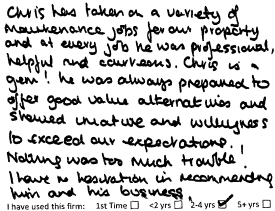 Chris has taken on a variety of
maintenance jobs for our property
and at every job he was professional,
helpful and courteous. Chris is a
gem! he was always prepared to
offer good value alternatives and
showed initiative and willingness
to exceed our expectations!
Nothing was too much trouble!
I have no hesitation in recommending
him and his business.
I have used this firm: 1st Time ☐ <2 yrs ☐ 2-4 yrs ☑ 5+ yrs ☐